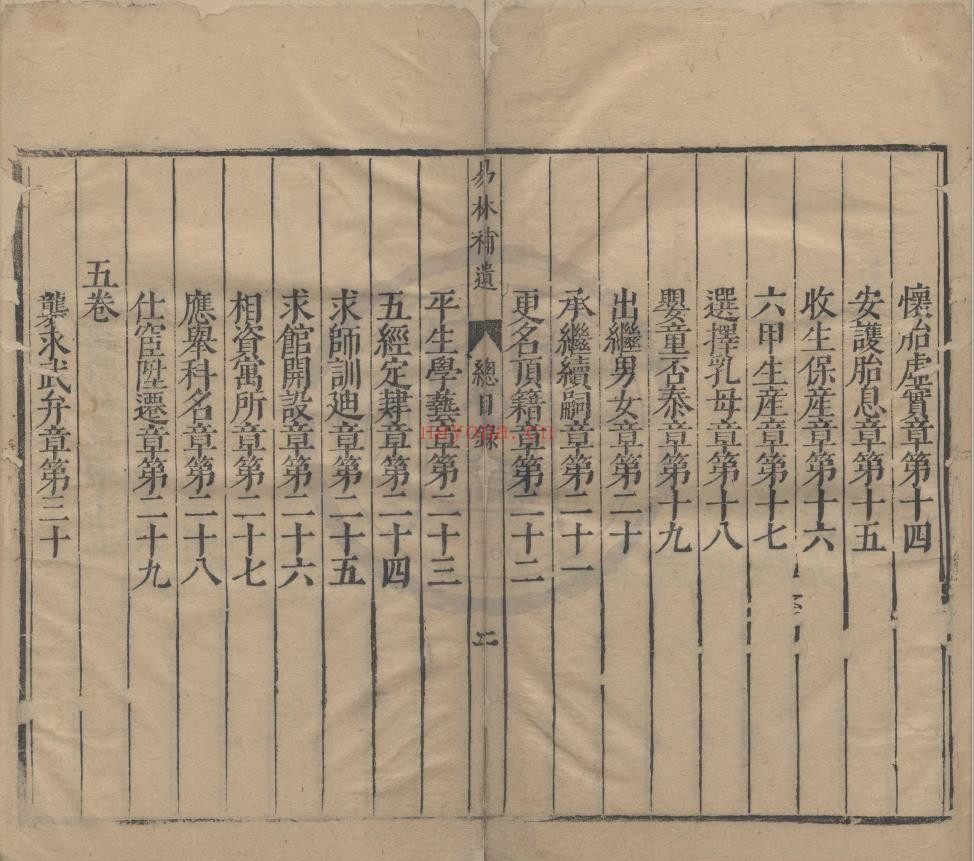 懷胎虛實章第十四
安護胎息章第十五
收生保產章第十六
六甲生產章第十七
選擇乳母章第十八
嬰童否泰章第十九
出繼男女章第二十
承繼續嗣章第二十一
更名頂籍章第二十二
易林補遺 總目錄 二
平生學藝章第二十三
五經定肄章第二十四
求師訓廸章第二十五
求館開設章第二十六
相資寓所章第二十七
應舉科名章第二十八
仕宦陞遷章第二十九
五卷
襲求武弁章第三十
nayona.cn